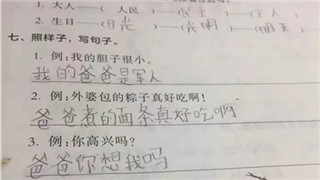 1. 大人——(人民)——(民主)——(主人)
2. 生日——(日光)——(光明)——(明天)
七、照样子,写句子。
1. 例:我的胆子很小。
我的爸爸是军人
2. 例:外婆包的粽子真好吃啊!
爸爸煮的面条真好吃啊
3. 例:你高兴吗?
爸爸你想我吗